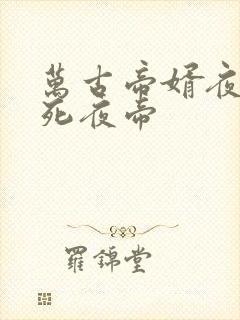 萬古帝婿夜
死夜帝
羅錦堂